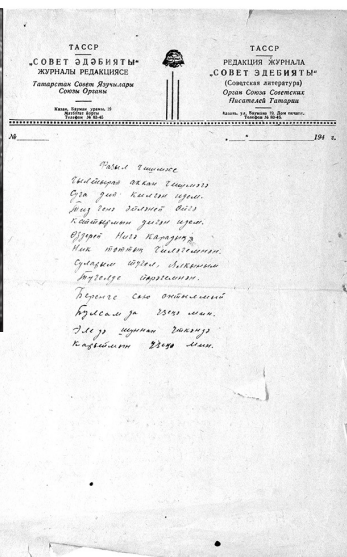 ТАССР
„СОВЕТ ӘДӘБИЯТЫ"
ЖУРНАЛЫ РЕДАКЦИЯСЕ
Татарстан Совет Язучылары
Союзы Органы
Казан, Бауман урамы, 19
Матбугат йорты
Телефон № 63-45
ТАССР
РЕДАКЦИЯ ЖУРНАЛА
„СОВЕТ ЭДЕБИЯТЫ"
(Советская литература)
Орган Союза Советских
Писателей Татарии
Казань, ул. Баумана 19, Дом печати.
Телефон № 63-45
№ 194 г.
чишмәсе
аккан чишмәгә
Суга дип килгән идем.
Тиз генә әйләнеп өйгә
Кайтырмын дигән идем.
Нигә карадың
Ник тоттың чиләгемнән.
Суларым түгел,
Түгелде йөрәгемнән.
Беренче сөю онытылмый
Булсам да үзем мин.
Әле дә шуннан үткәндә
үзем мин.